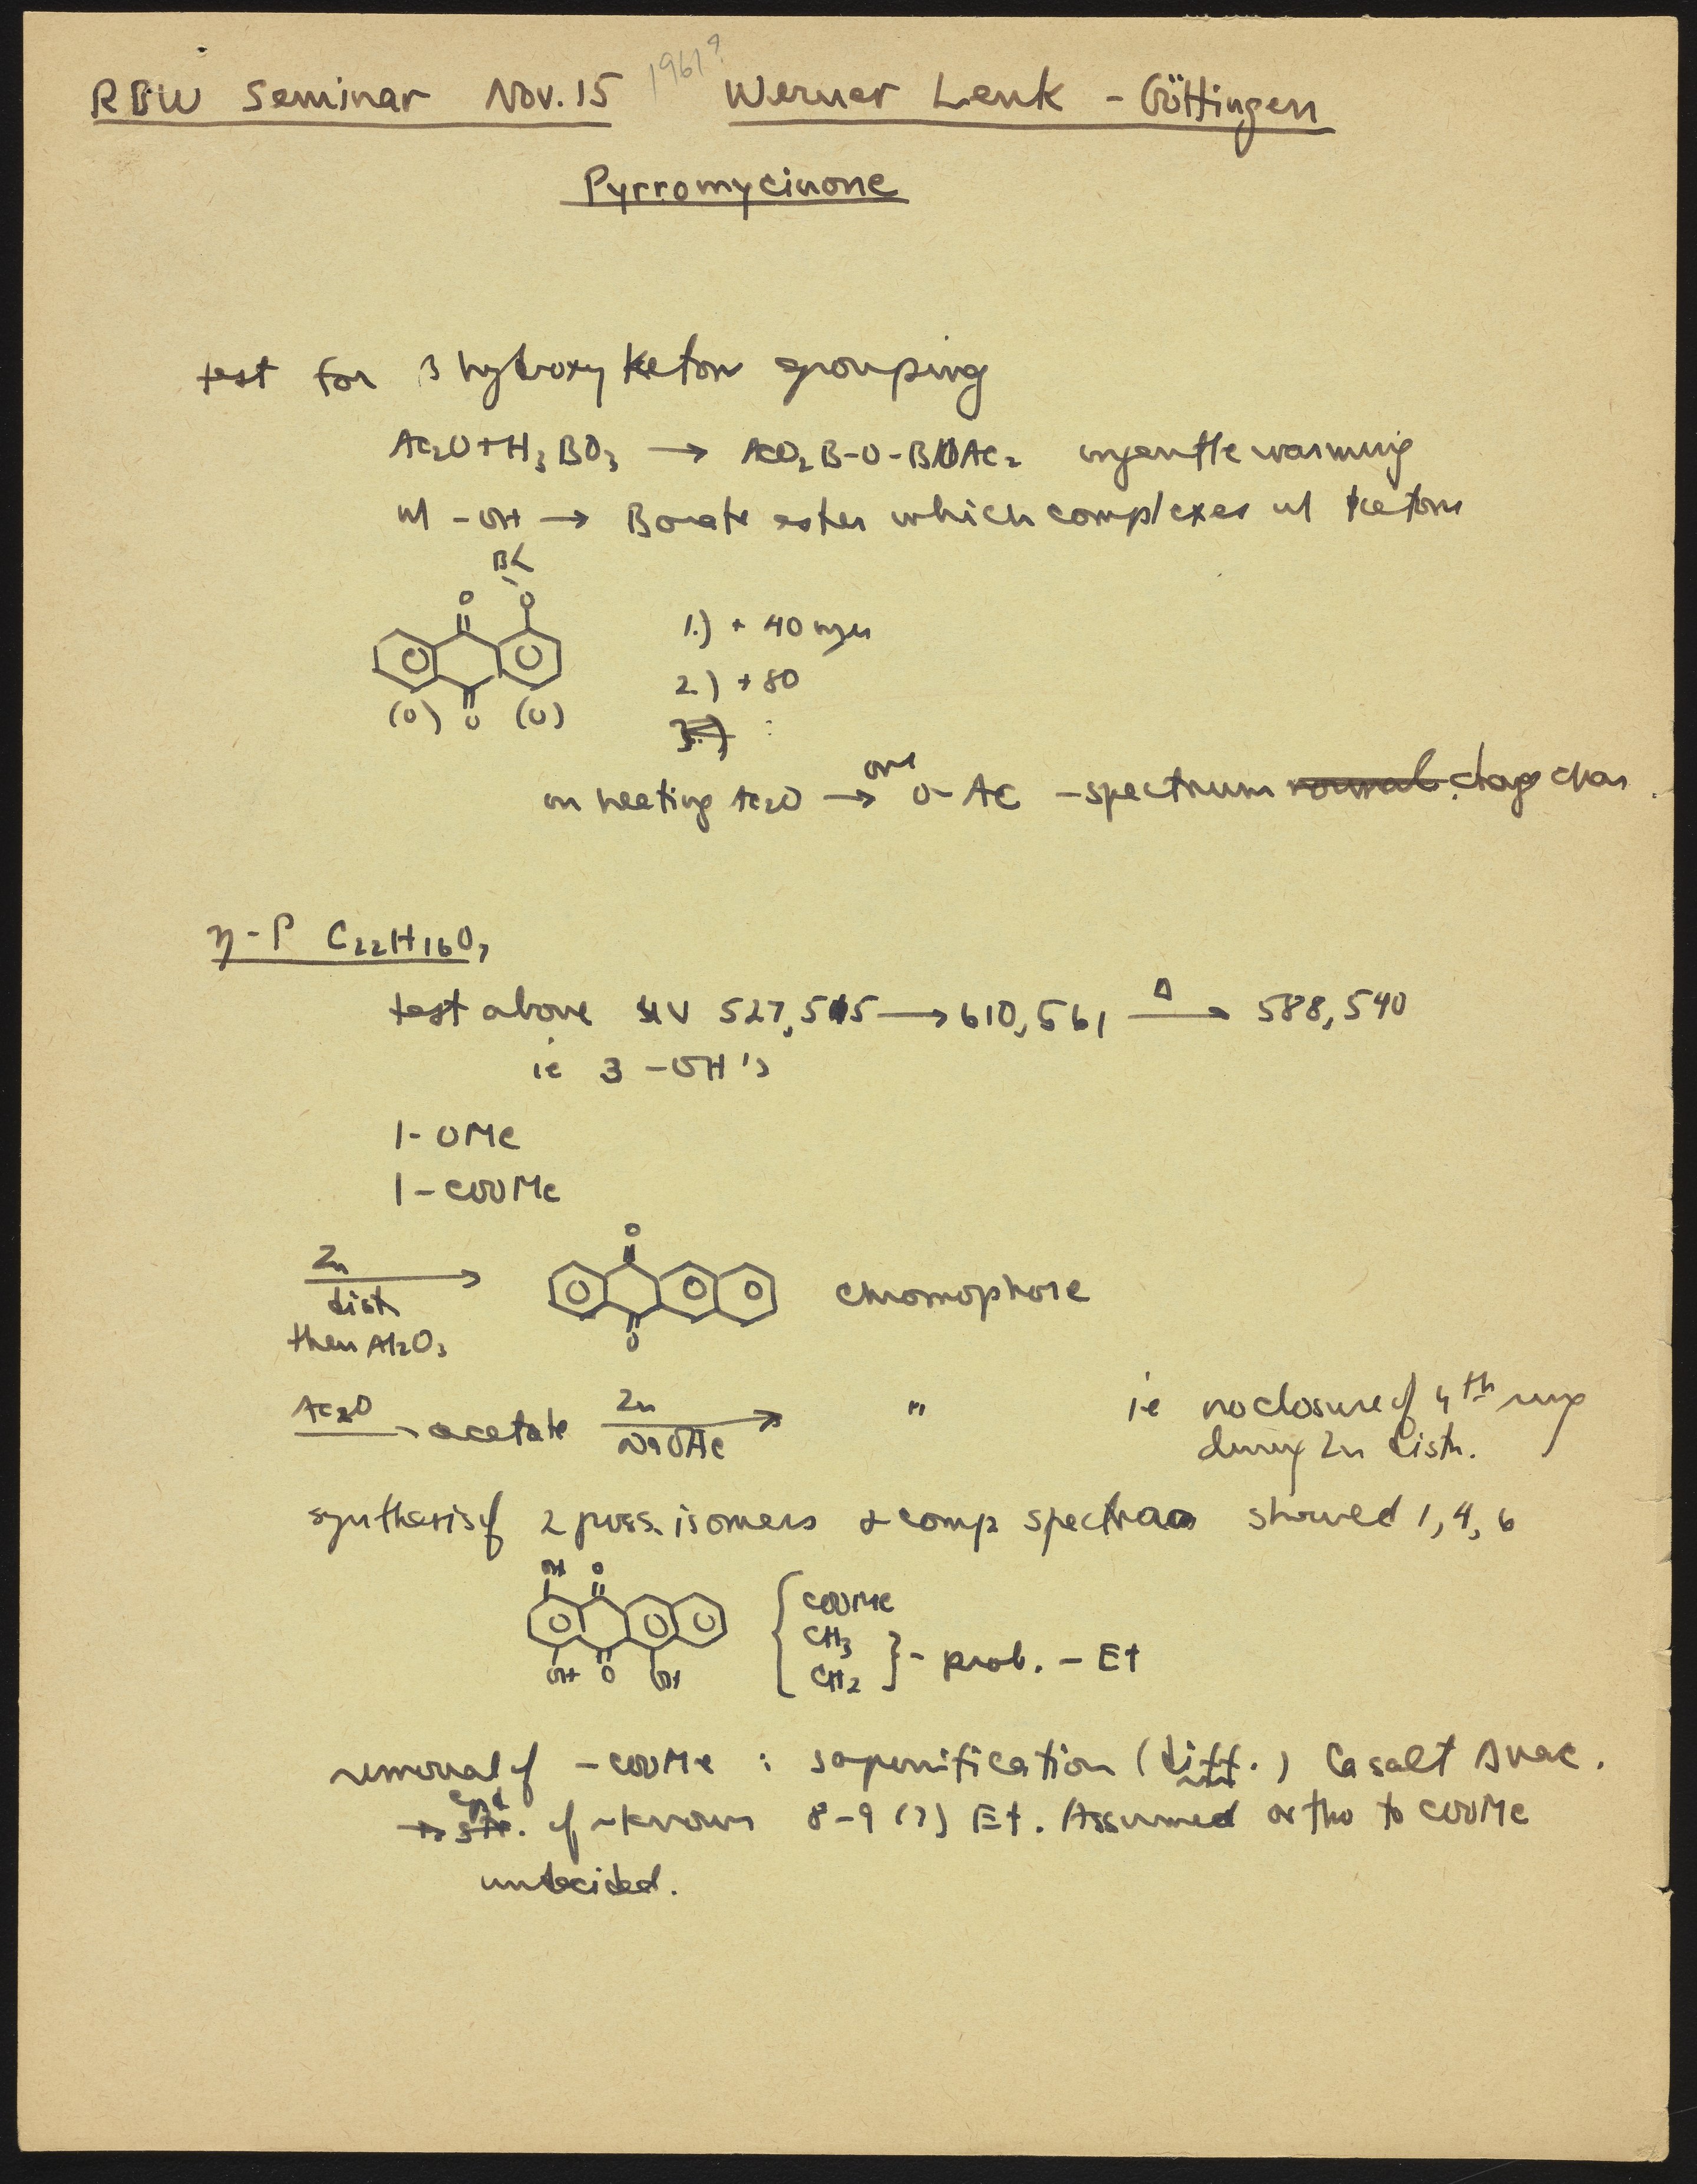 RBW Seminar Nov. 15 1961? Werner Lenk - Göttingen
Pyrromycinone
test for β hydroxy Keton grouping
Ac₂O + H₃BO₃ → AcO₂B-O-BOAc₂ on gentle warming
w/ -OH → Borate ester which complexes w/ ketone
B<
O O
(O) O (O)
1.) + 40 mμ
2.) + 80
3.)
on heating Ac₂O → O-Ac - spectrum normal
η-P C₂₂H₁₆O₇
test above UV 527, 515 → 610, 561 Δ→ 588, 540
ie 3 -OH's
1- OMe
1- COOMe
Zn
dist
then Al₂O₃
O
O
chromophore
Ac₂O → acetate Zn → NaOAc " ie no closure of 4th ring
during Zn distn.
synthesis of 2 poss. isomers & comp spectra showed 1, 4, 6
OH O
OH O OH
COOMe
CH₃
CH₂
} - prob. - Et
removal of -COOMe : saponification (diff.) Ca salt Δ vac.
→ cpd. of known 8-9 (?) Et. Assumed ortho to COOMe
undecided.